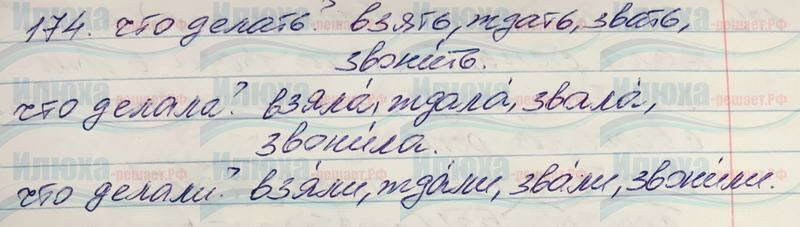 174. что делать? взять, ждать, звать,
звони́ть.
что делала? взяла́, ждала́, звала́,
звони́ла.
что делали? взя́ли, жда́ли, зва́ли, звони́ли.